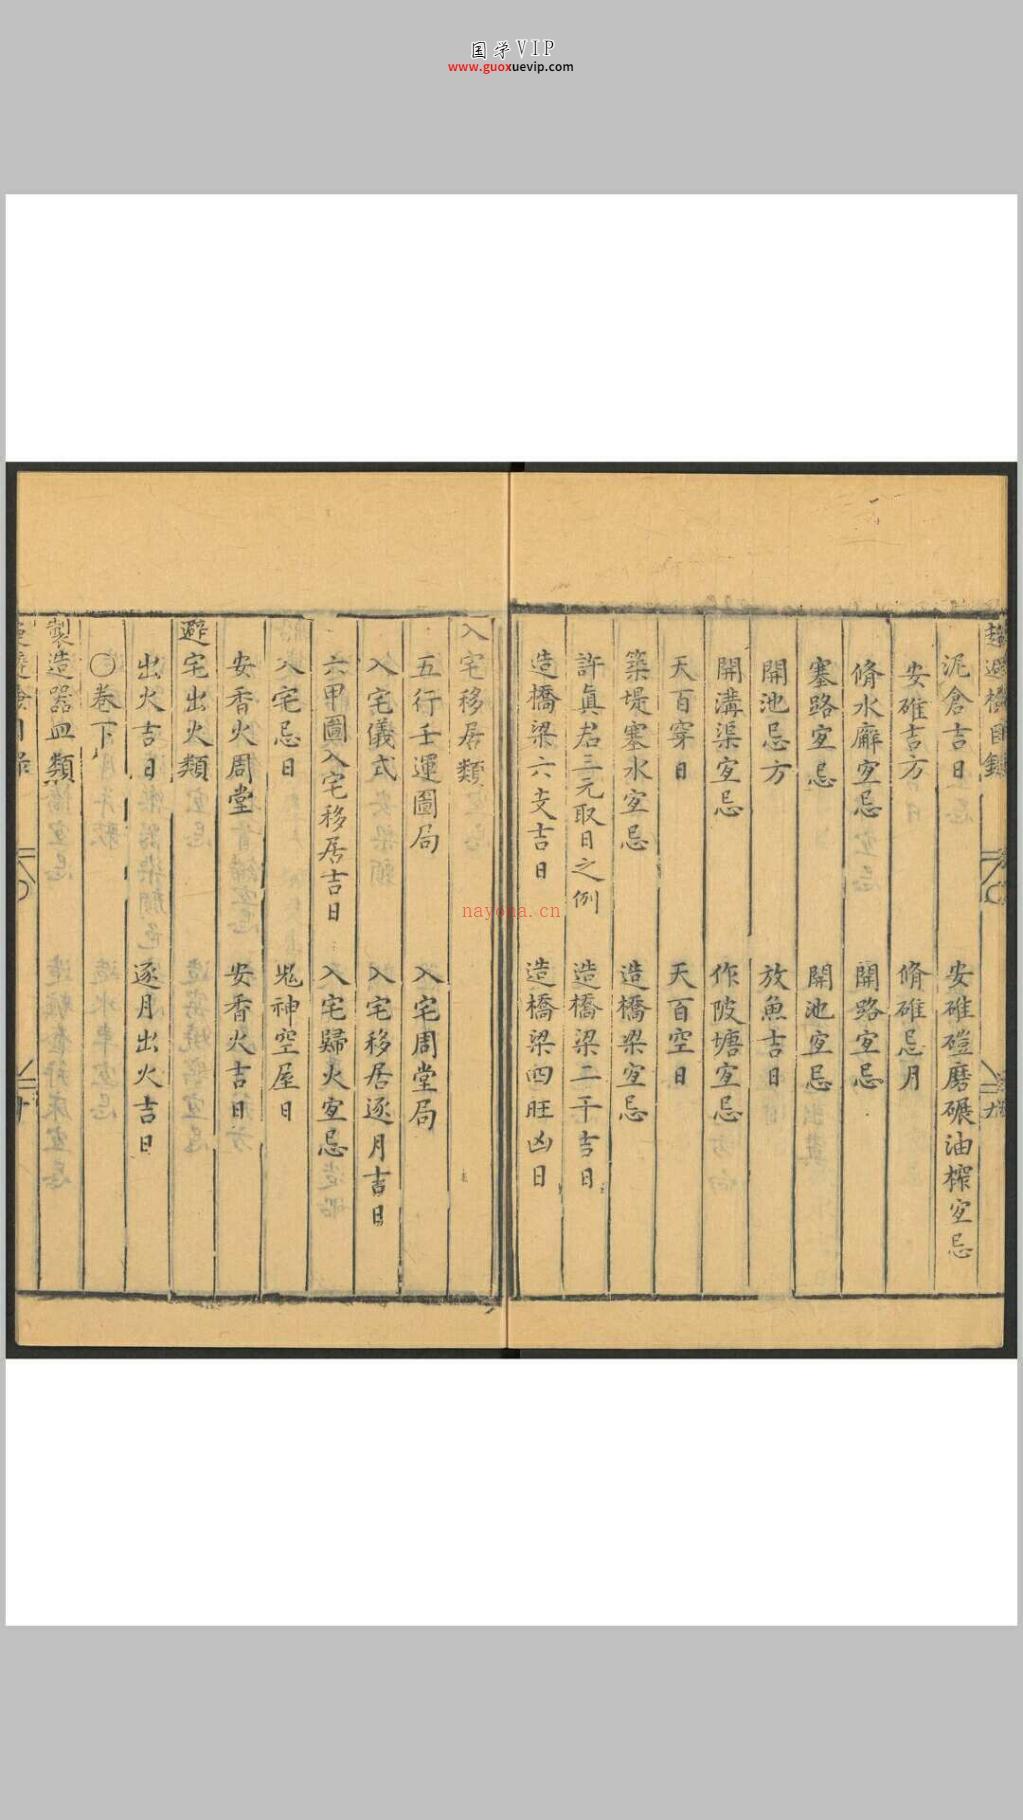 国学VIP
www.guoxuevip.com
泥倉吉日　安碓磑磨碾油榨宜忌
安碓吉方　脩碓忌月
脩水廨宜忌　開路宜忌
塞路宜忌　開池宜忌
開池忌方　放魚吉日
開溝渠宜忌　作陂塘宜忌
天百穿日　天百空日
築堤塞水宜忌　造橋梁宜忌
許真君三元取日之例　造橋梁二干吉日
造橋梁六支吉日　造橋梁四旺凶日
入宅移居類
五行壬運圖局　入宅周堂局
入宅儀式　入宅移居逐月吉日
六甲圖入宅移居吉日　入宅歸火宜忌
入宅忌日　鬼神空屋日
安香火周堂　安香火吉日
避宅出火類
出火吉日　逐月出火吉日
〇卷下
製造器皿類
nayona.cn